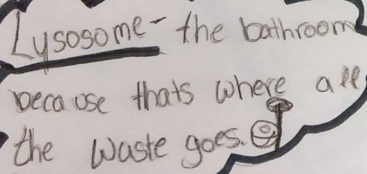 Lysosome - the bathroom
because thats where all
the waste goes.